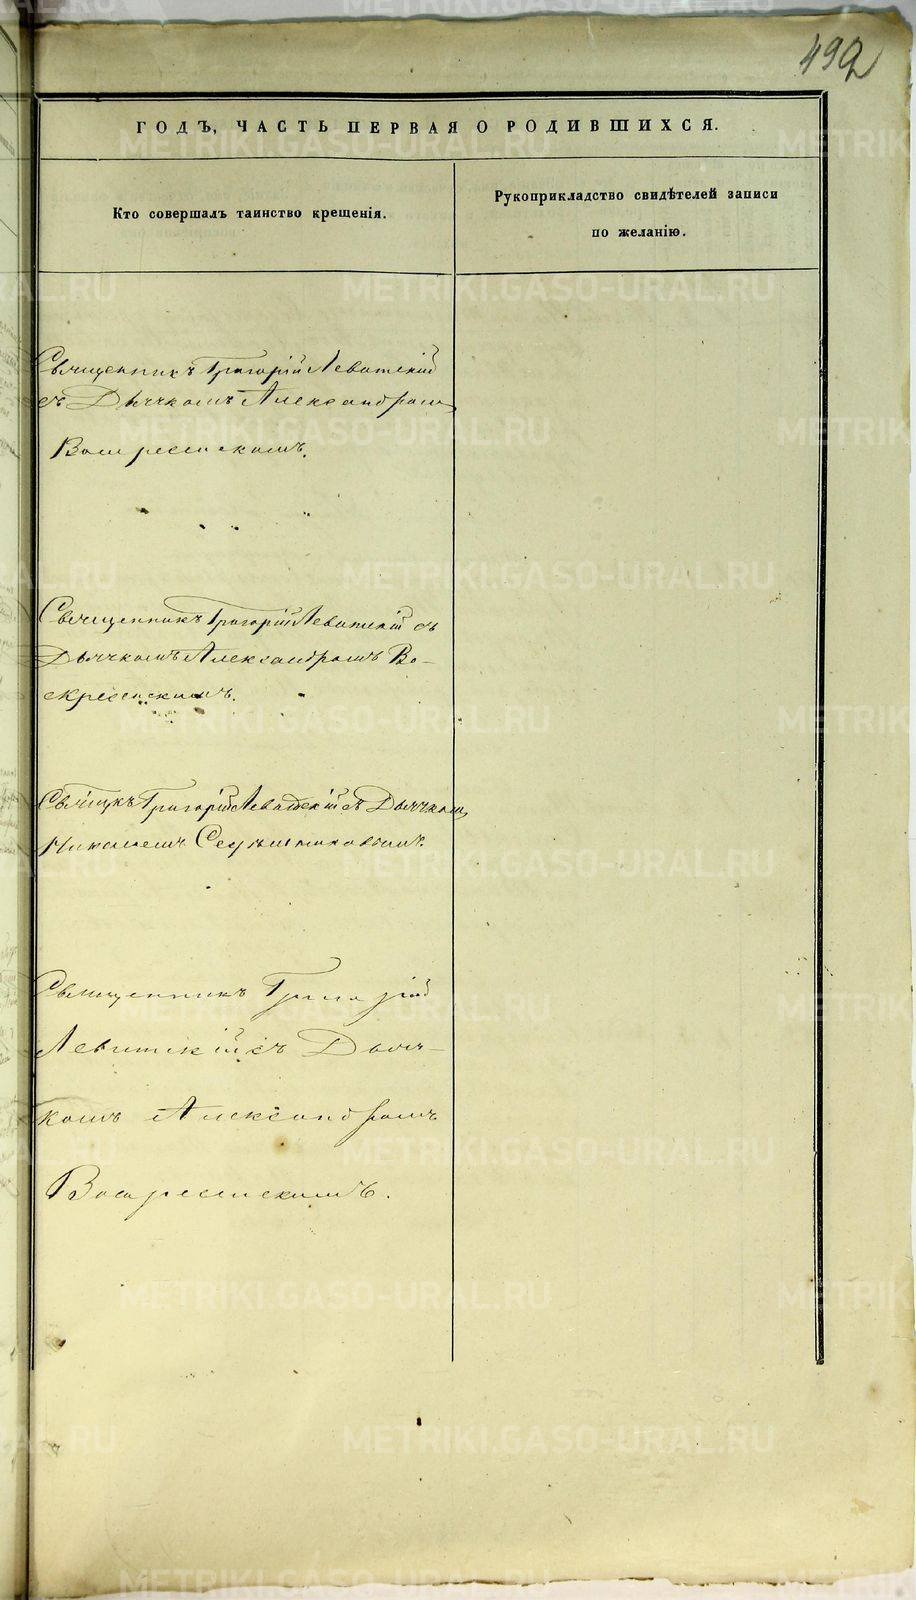 492
ГОДЪ, ЧАСТЬ ПЕРВАЯ О РОДИВШИХСЯ.
Кто совершалъ таинство крещенія.
Рукоприкладство свидѣтелей записи
по желанію.
Священникъ Григорій Левитскій
съ Дьячкомъ Александромъ
Воскресенскимъ.
Священникъ Григорій Левитскій съ
Дьячкомъ Александромъ Во-
скресенскимъ.
Григорій Левитскій съ Дьячкомъ
Николаемъ
Священникъ Григорій
Левитскій съ Дьяч-
комъ Александромъ
Воскресенскимъ.
METRIKI.GASO-URAL.RU